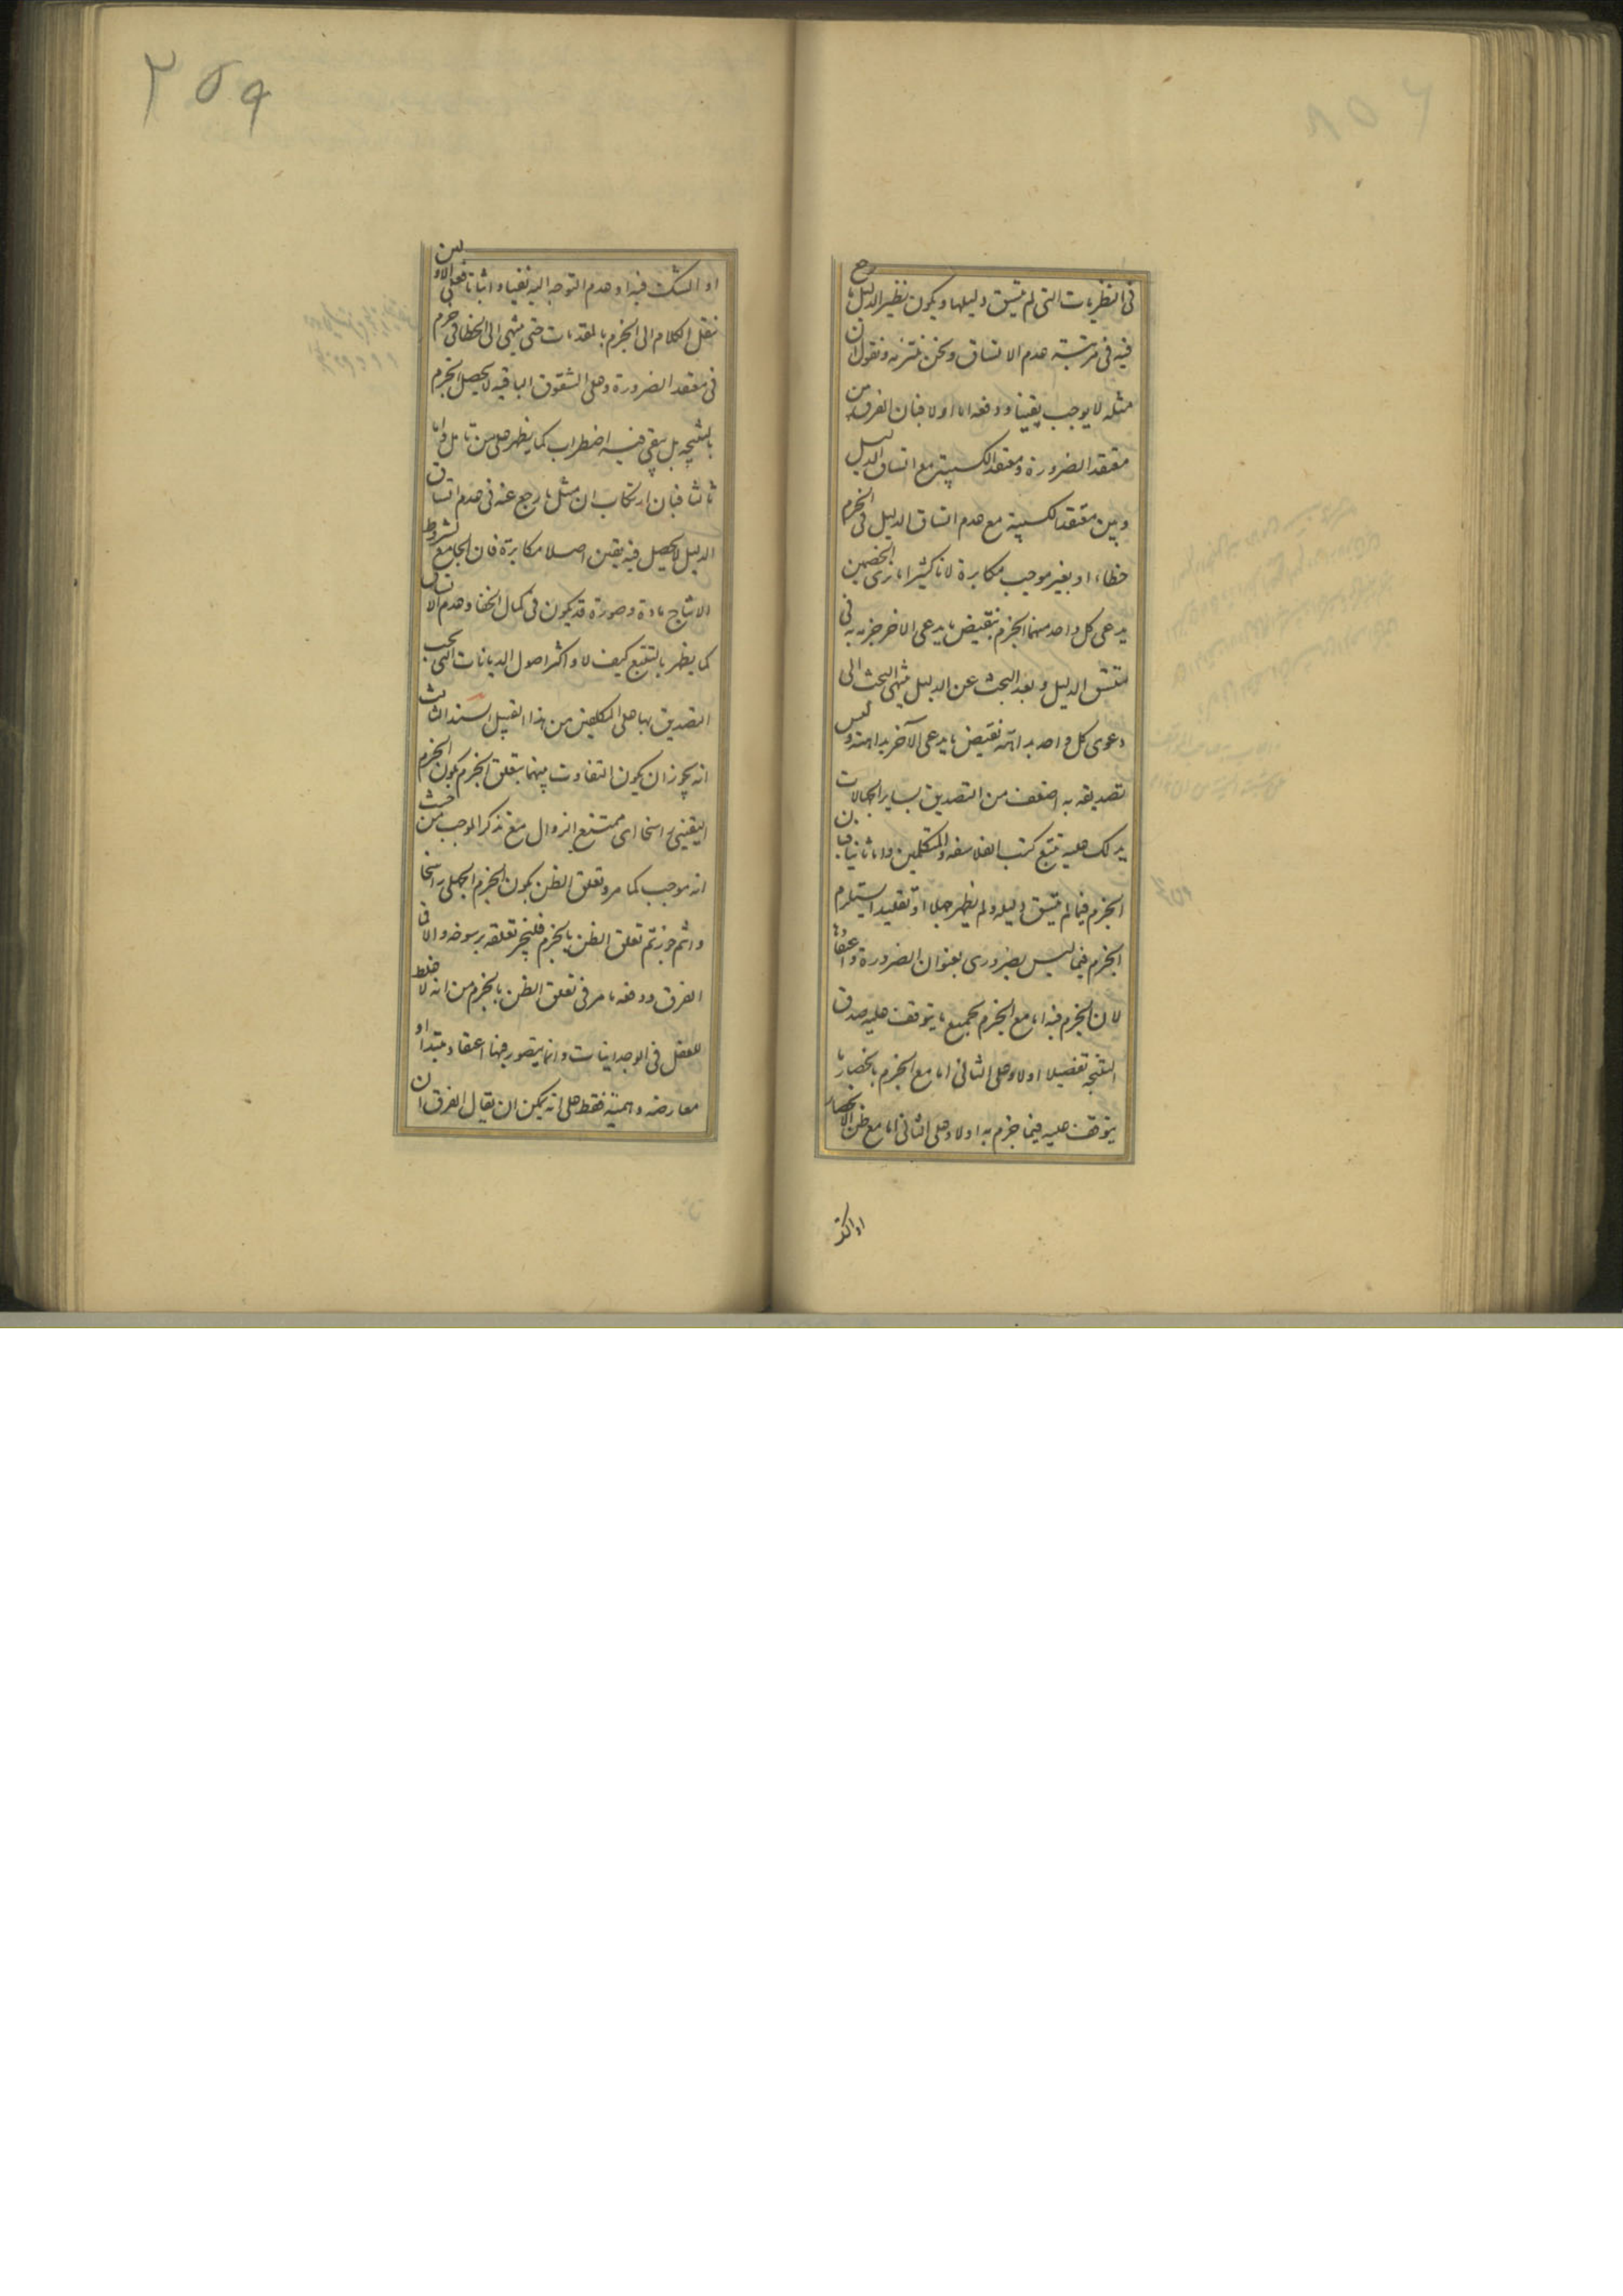 فى النظريات التى لم يتسق دليلها ويكون نظير الدليل ما رجح
فيه فى مرتبة عدم الاتساق ونحن نلتزمه ونقول ان
مثله لا يوجب يقينا ودفعه اما اولا فبان الفرق بين
معتقد الضرورة ومعتقد الكسبية مع اتساق الدليل
وبين معتقد الكسبية مع عدم اتساق الدليل فى الجزم
خطاء او بغير موجب مكابرة لانا كثيرا ما نرى الخصمين
يدعى كل واحد منهما الجزم بنقيض ما يدعى الاخر جزمه به فى
متسق الدليل وبعد البحث عن الدليل ينتهى البحث الى
دعوى كل واحد بداهة نقيض ما يدعى الآخر بداهته وليس
تصديقه به اضعف من التصديق بساير الجهالات
يدلك عليه تتبع كتب الفلاسفة والمتكلمين واما ثانيا فبان
الجزم فيما لم يتسق دليله ولم يظهر جهلا او تقليدا يستلزم
الجزم فيما ليس بضرورى بعنوان الضرورة واعتقادها
لان الجزم فيه اما مع الجزم بجميع ما يتوقف عليه صدق
النتيجة تفصيلا اولا وعلى الثانى اما مع الجزم بانحصار ما
يتوقف عليه فيما جزم به اولا وعلى الثانى اما مع ظن الانحصار
او الشك فيه او عدم التوجه اليه نفيا واثباتا فعلى الاولين
ننقل الكلام الى الجزم بالمقدمات حتى ينتهى الى الخطا فى جزم
فى معتقد الضرورة وعلى الشقوق الباقية لا يحصل الجزم
بالنتيجه بل يبقى فيه اضطراب كما يظهر على من تامل واما
ثالثا فبان ارتكاب ان مثل ما رجع عنه فى عدم اتساق
الدليل لا يحصل فيه يقين اصلا مكابرة فان الجامع لشروط
الانتاج مادة وصورة قد يكون فى كمال الخفا وعدم الاتساق
كما يظهر بالتتبع كيف لا واكثر اصول الديانات التى يجب
التصديق بها على المكلفين من هذا القبيل السند الثالث
انه يجوز ان يكون التفاوت بينهما بتعلق الجزم بكون الجزم
اليقينى راسخا اى ممتنع الزوال مع تذكر الموجب من حيث
انه موجب كما مر وتعلق الظن بكون الجزم الجهلى راسخا
وانتم جوزتم تعلق الظن بالجزم فليجز تعلقه برسوخه والا فما
الفرق ودفعه ما مر فى تعلق الظن بالجزم من انه لا غلط
للعقل فى الوجدانيات وانما يتصور فيها اعتقاد مبتدا او
معارضه وهمية فقط على انه يمكن ان يقال الفرق ان
او الشك
٢٥٩